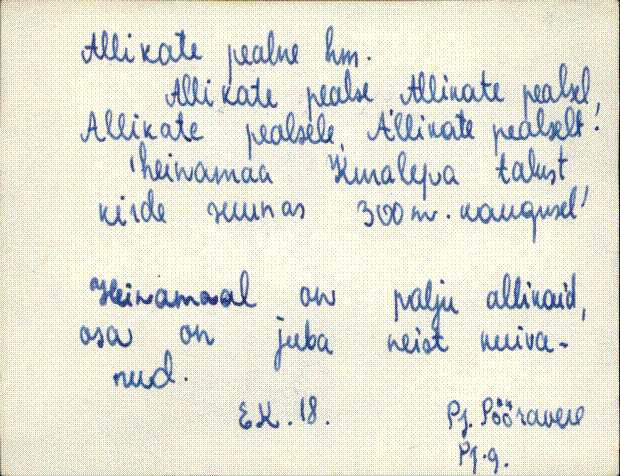 Allikate pealne hm.
Allikate pealse Allikate pealsel,
Allikate pealsele, Allikate pealselt.
'heinamaa Kuralepa talust
kirde suunas 300 m. kaugusel'
Heinamaal on palju allikaid,
osa on juba neist kuiva-
nud.
EK. 18. Pj. Pööravere
Pj. g.